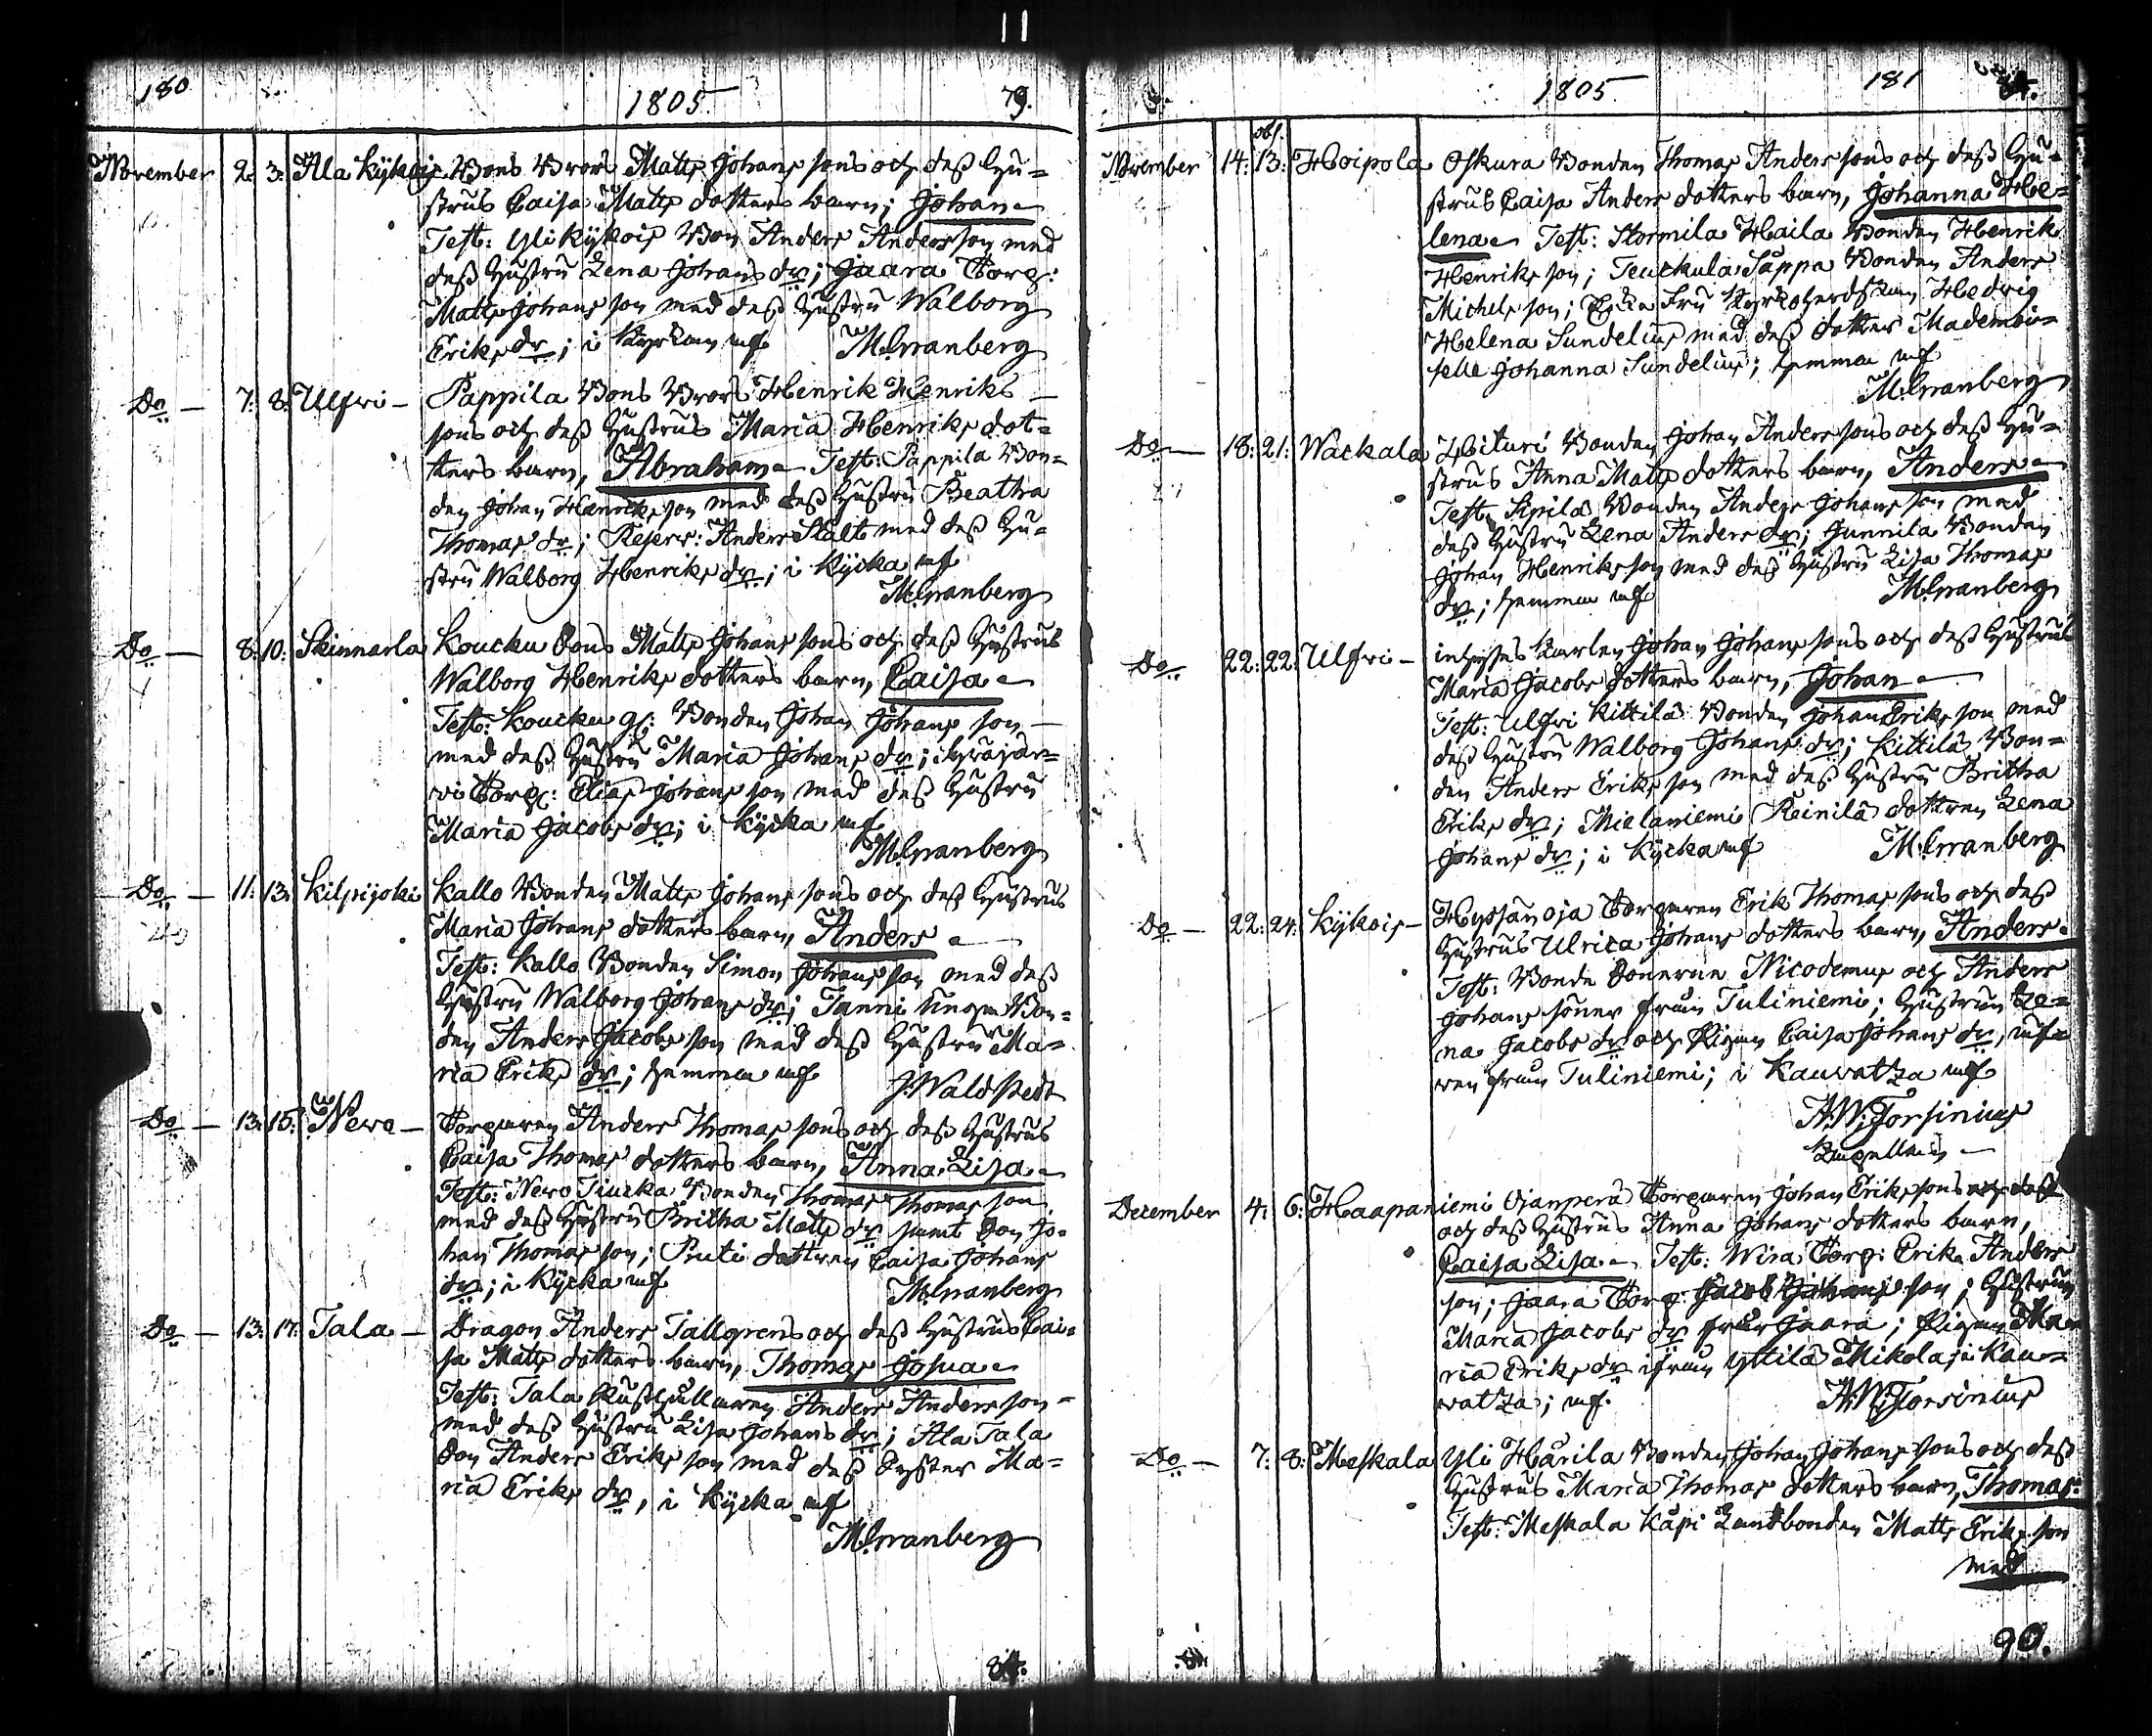 180
1805
79.
November 2: 3: Ala Kÿkois Bons Brors Matts Johans sons och dess Hu=
strus Caisa Matts dotters barn; Johan
Test: Yli Kÿkois Bon Anders Andersson med
dess Hustru Lena Johans dr; Jaara Torp:
Matts Johans son med dess Hustru Walborg
Eriks dr; i Kyrkan mf M:Granberg
Do 7: 8: Ulfvi Pappila Bons Brors Henrik Henriks
sons och dess Hustrus Maria Henriks dot=
ters barn, Abraham Test: Pappila Bon=
den Johan Henriks son med dess Hustru Beatha
Thomas dr; Reserv: Anders Stalt med dess Hu=
stru Walborg Henriks dr; i Kÿrka mf
M:Granberg
Do 8: 10: Skinnarla Koucku Sons Matts Johans sons och dess Hustrus
Walborg Henriks dotters barn, Caisa
Test: Koucku gl: Bonden Johan Johans son
med dess Hustru Maria Johans dr; Pyräjär=
vi Torp: Elias Johans son med dess Hustru
Maria Jacobs dr; i Kÿrka mf
M:Granberg
Do 11: 13: Kilpijoki Kallo Bonden Matts Johans sons och dess Hustrus
Maria Johans dotters barn, Anders
Test: Kallo Bonden Simon Johans son med dess
Hustru Walborg Johans dr; Tanni unga Bon=
den Anders Jacobs son med dess Hustru Ma=
ria Eriks dr; hemma mf J:Waldstedt
Do 13: 15: Nera Torparen Anders Thomas sons och dess Hustrus
Caisa Thomas dotters barn, Anna Lisa
Test: Nero Tiucka Bonden Thomas Thomas son
med dess Hustru Britha Matts dr samt Son Jo=
han Thomas son; Ruti dottren Caisa Johans
dr; i Kÿrka mf M:Granberg
Do 13: 17: Tala Dragon Anders Tallgrens och dess Hustrus Cai=
sa Matts dotters barn, Thomas Josua
Test: Tala Rusthållaren Anders Anders son
med dess Hustru Lisa Johans dr; Ala Tala
Son Anders Eriks son med dess Syster Ma=
ria Eriks dr, i Kÿrka mf
M:Granberg
1805
181
obs.
November 14: 13: Hoipola Oskura Bonden Thomas Anders sons och dess Hu=
strus Caisa Anders dotters barn, Johanna He=
lena Test: Stormila Haila Bonden Henrik
Henriks son; Teuckula Sappa Bonden Anders
Michels son; Enke Fru Kyrkoherdskan Hedvig
Helena Sundelius med dess dotter Mademoi=
selle Johanna Sundelius; hemma mf
M:Granberg
Do 18: 21: Wackala Hoituri Bonden Johan Anders sons och dess Hu=
strus Anna Matts dotters barn, Anders
Test: Sipilä Bonden Anders Johans son med
dess Hustru Lena Anders dr; Junnila Bonden
Johan Henriks son med dess Hustru Lisa Thomas
dr; hemma mf M:Granberg
Do 22: 22: Ulfvi inhyses Karlen Johan Johans sons och dess Hustrus
Maria Jacobs dotters barn, Johan
Test: Ulfvi Kittilä Bonden Johan Eriks son med
dess Hustru Walborg Johans dr; Kittilä Bon=
den Anders Eriks son med dess Hustru Britha
Eriks dr; Mielaniemi Reinilä dottren Lena
Johans dr; i Kÿrka mf M:Granberg
Do 22: 24: Kÿkois Hyssän oja Torparen Erik Thomas sons och dess
Hustrus Ulrica Johans dotters barn, Anders
Test: Bonde Sönerne Nicodemus och Anders
Johans söner från Tuliniemi; Hustrun Le=
na Jacobs dr och Pigan Caisa Johans dr,
ven från Tuliniemi; i Kauvatza mf
A.W:Forsinius
Capellan
December 4: 6: Haapaniemi Ojanperä Torparen Johan Eriks sons och dess
och dess Hustrus Anna Johans dotters barn,
Caisa Lisa Test: Wira Torp: Erik Anders
son; Jaara Torp: Jacob Johans son; Hustrun
Maria Jacobs dr från Jaara; Pigan Ma=
ria Eriks dr ifrån Yttilä Mikola; i Kau=
vatza; mf. A.W:Forsinius
Do 7: 8: Meskala Yli Härilä Bonden Johan Johans sons och dess
Hustrus Maria Thomas dotters barn, Thomas
Test: Meskala Käpi Landbonden Matts Eriks son
med
90.